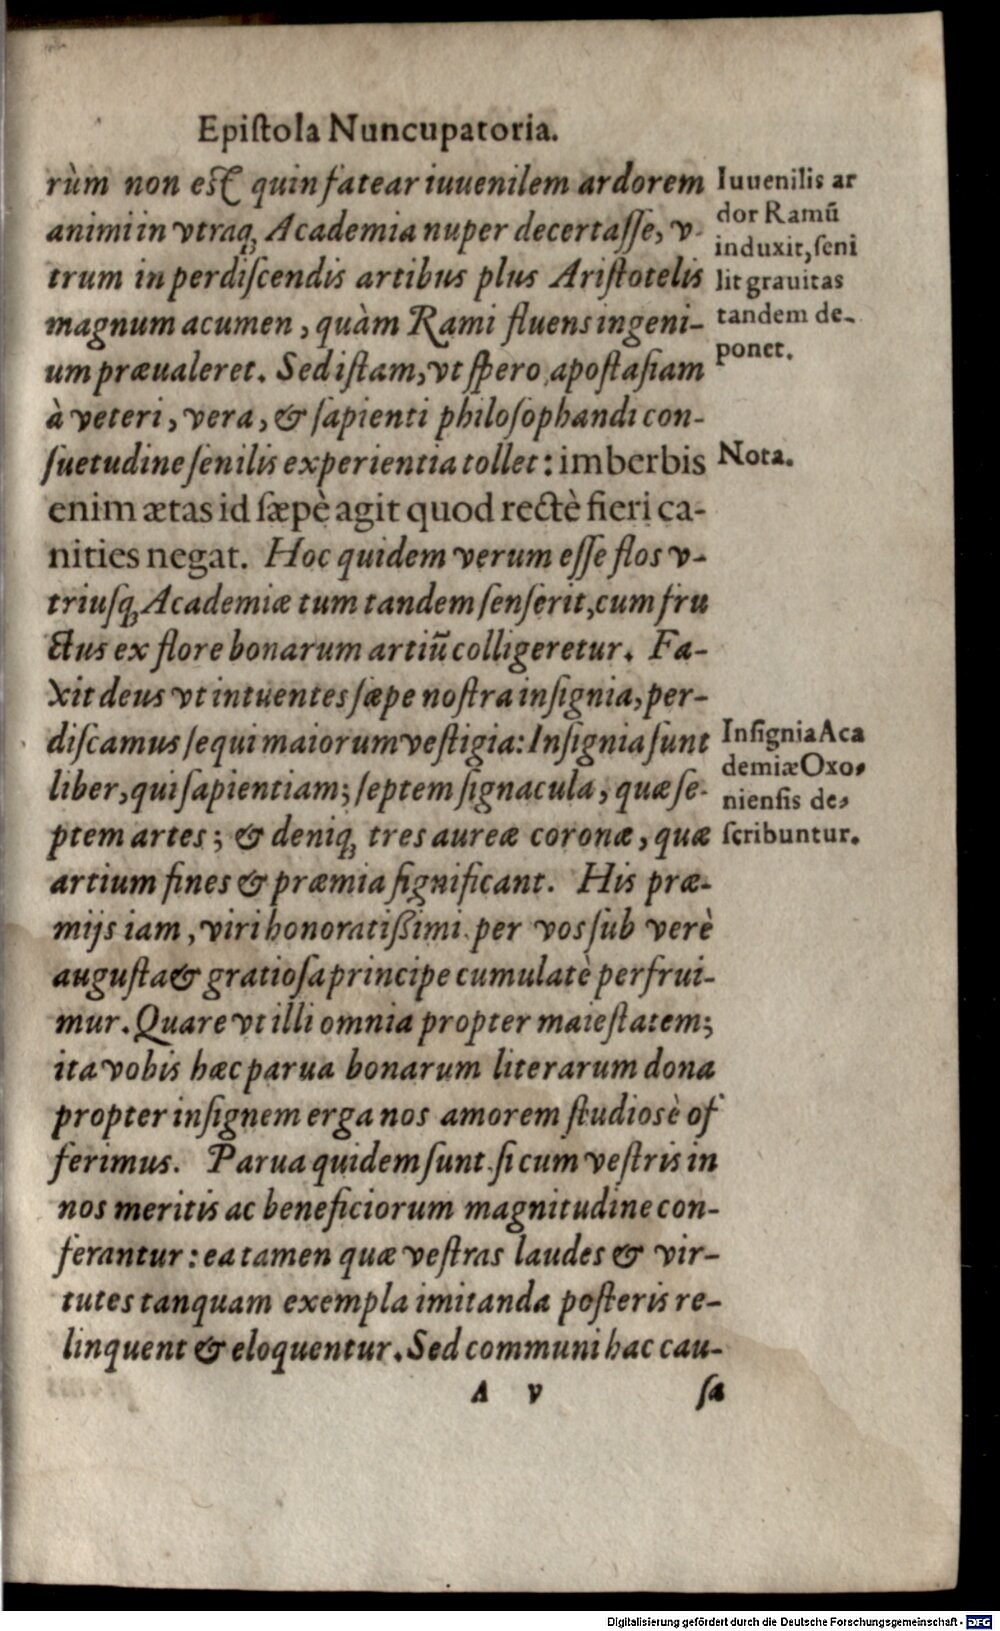 Epiſtola Nuncupatoria.
rùm non eſt quin fatear iuuenilem ardorem
animi in vtraq; Academia nuper decertaſſe, v-
trum in perdiſcendis artibus plus Ariſtotelis
magnum acumen, quàm Rami fluens ingeni-
um præualeret. Sed iſtam, vt ſpero, apoſtaſiam
à veteri, vera, & ſapienti philoſophandi con-
ſuetudine ſenilis experientia tollet: imberbis
enim ætas id ſæpè agit quod rectè fieri ca-
nities negat. Hoc quidem verum eſſe flos v-
triuſq; Academiæ tum tandem ſenſerit, cum fru
ctus ex flore bonarum artiũ colligeretur. Fa-
xit deus vt intuentes ſæpe noſtra inſignia, per-
diſcamus ſequi maiorum veſtigia: Inſignia ſunt
liber, qui ſapientiam; ſeptem ſignacula, quæ ſe-
ptem artes; & deniq; tres aureæ coronæ, quæ
artium fines & præmia ſignificant. His præ-
mijs iam, viri honoratiſſimi, per vos ſub verè
auguſta & gratioſa principe cumulatè perfrui-
mur. Quare vt illi omnia propter maieſtatem;
ita vobis hæc parua bonarum literarum dona
propter inſignem erga nos amorem ſtudiosè of
ferimus. Parua quidem ſunt, ſi cum veſtris in
nos meritis ac beneficiorum magnitudine con-
ferantur: ea tamen quæ veſtras laudes & vir-
tutes tanquam exempla imitanda poſteris re-
linquent & eloquentur. Sed communi hac cau-
A v ſa
Iuuenilis ar
dor Ramũ
induxit, ſeni
lit grauitas
tandem de-
ponet.
Nota.
Inſignia Aca
demiæ Oxo-
nienſis de-
ſcribuntur.
Digitalisierung gefördert durch die Deutsche Forschungsgemeinschaft - DFG